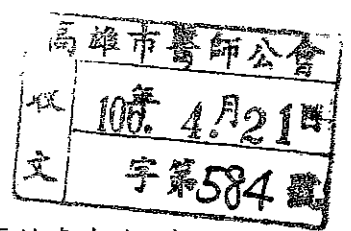 高雄市醫師公會
收文
106年 4.月21日
字第584號